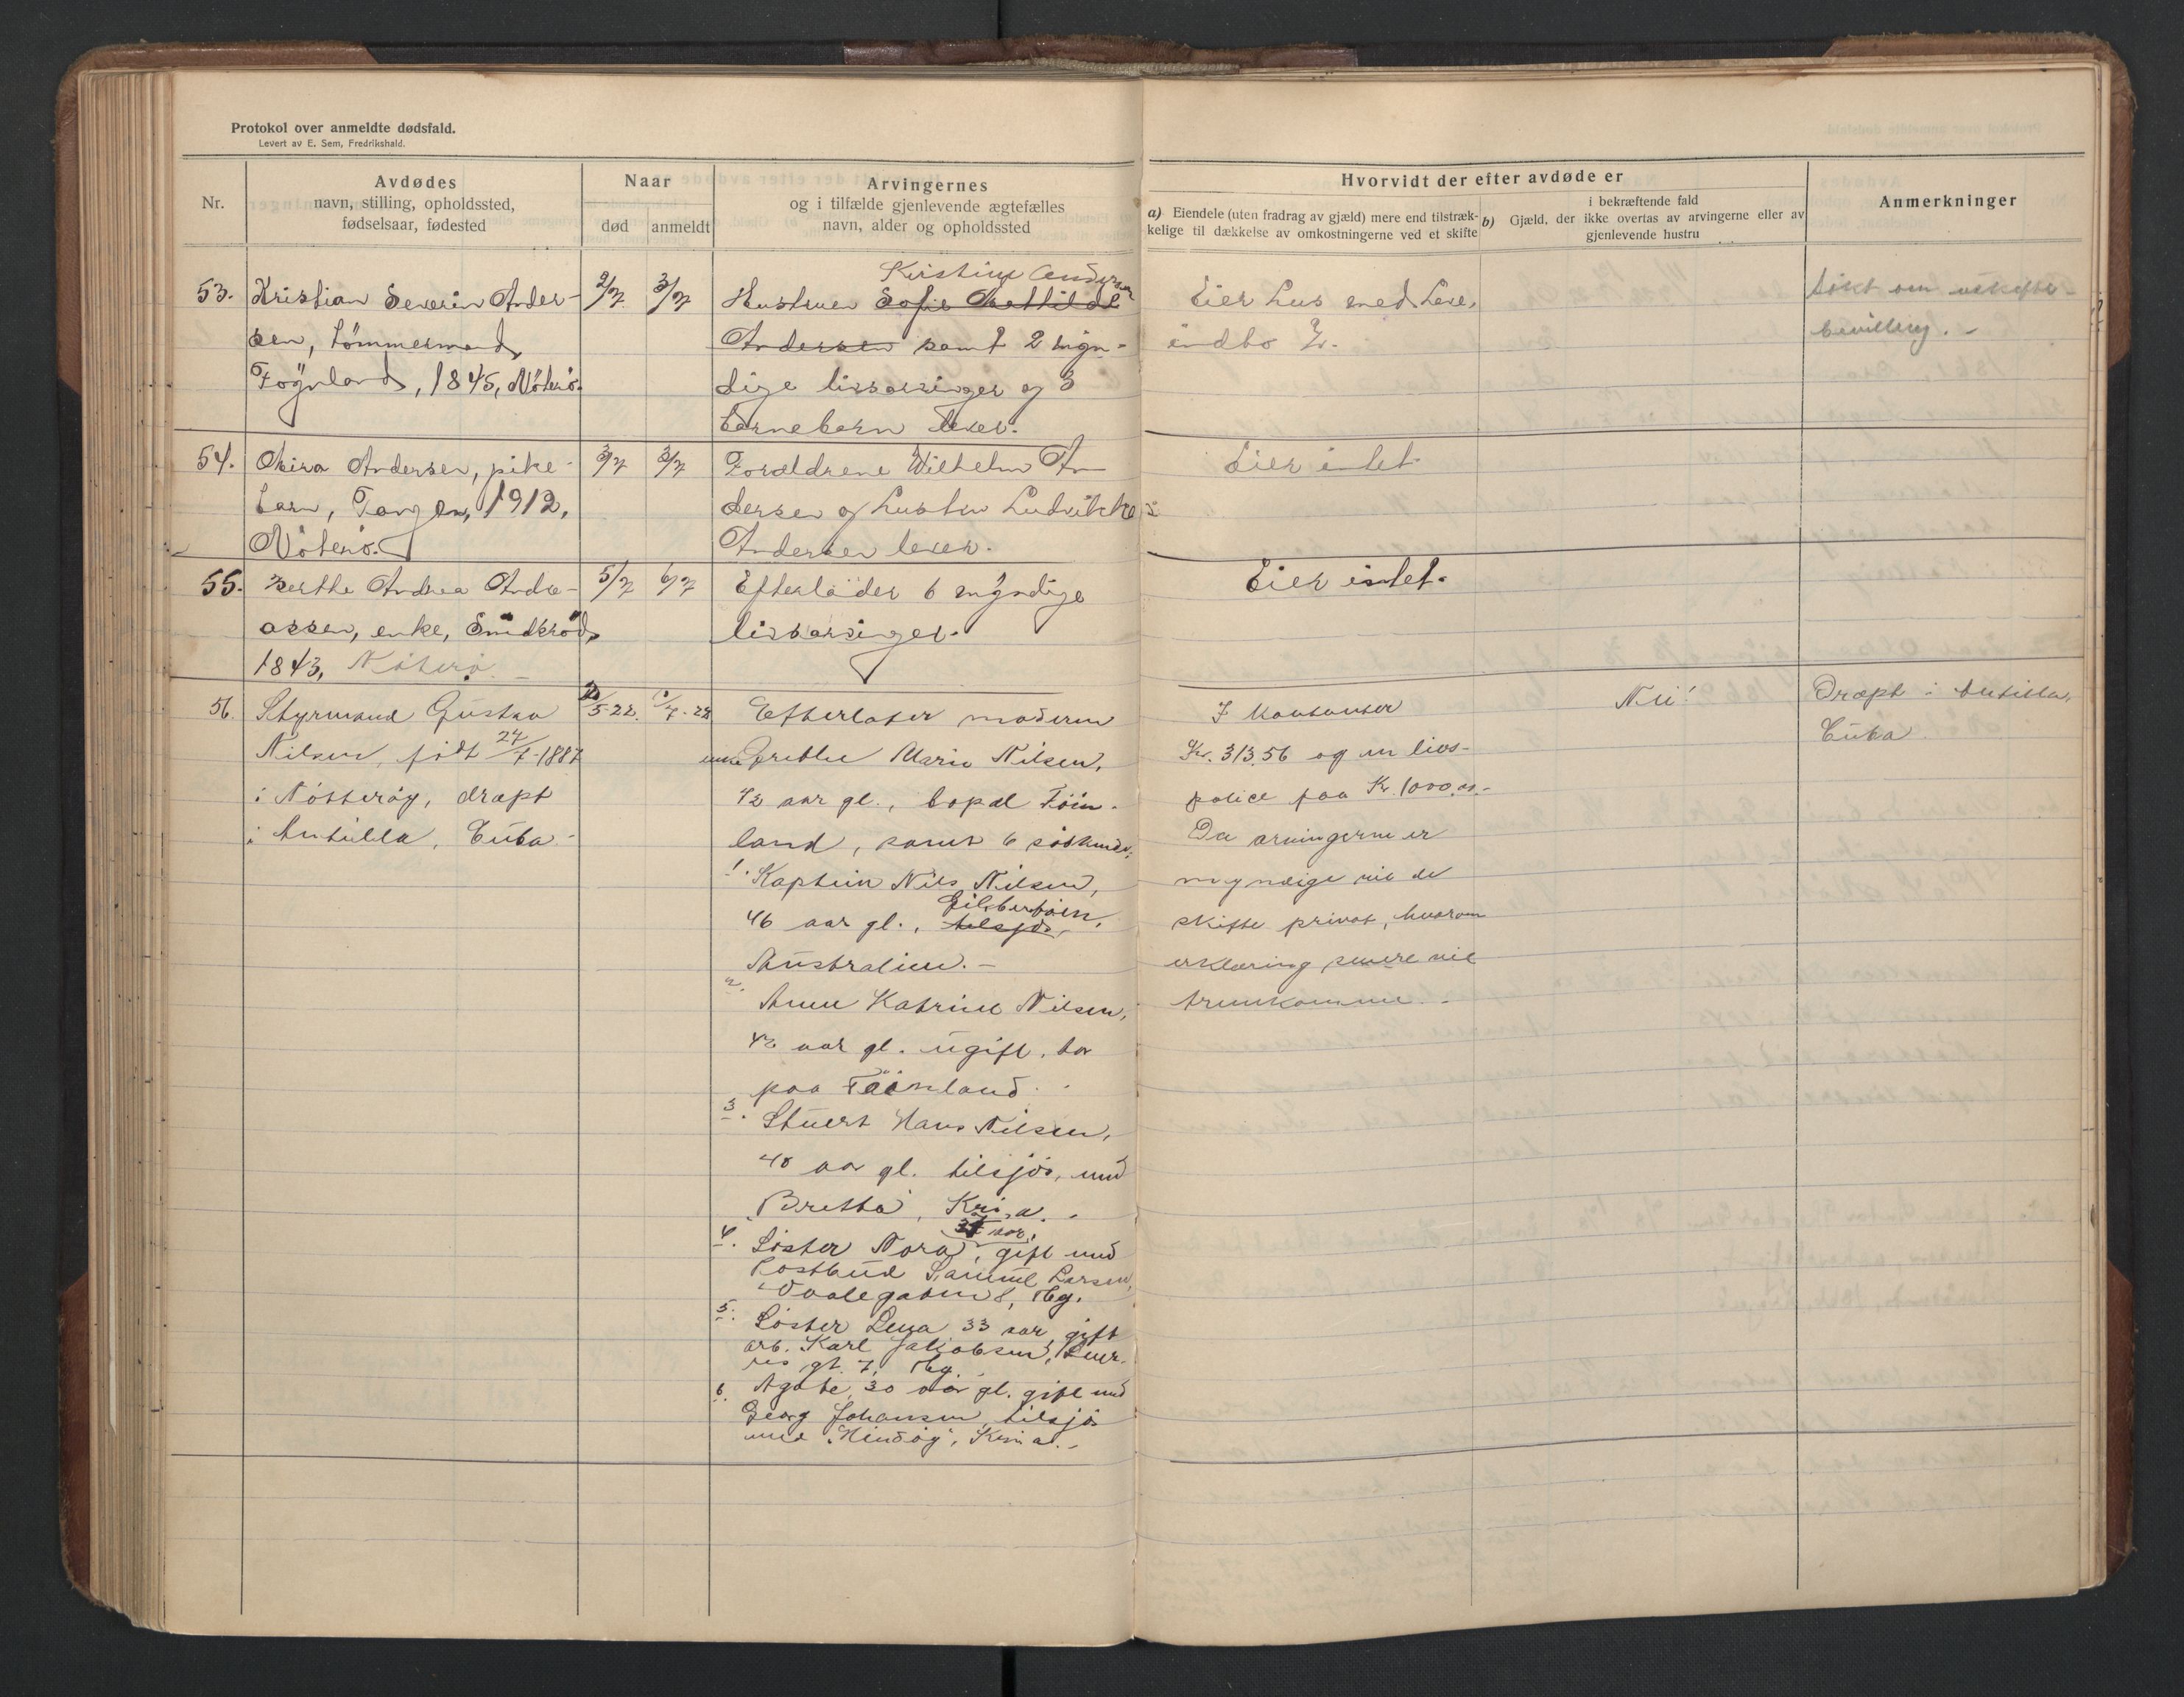 Protokol over anmeldte dødsfald.
Levert av E. Sem, Fredrikshald.
Nr.
Avdødes
navn, stilling, opholdssted,
fødselsaar, fødested
Naar
død
anmeldt
Arvingernes
og i tilfælde gjenlevende ægtefælles
navn, alder og opholdssted
Hvorvidt der efter avdøde er
a) Eiendele (uten fradrag av gjæld) mere end tilstræk-
kelige til dækkelse av omkostningerne ved et skifte
i bekræftende fald
b) Gjæld, der ikke overtas av arvingerne eller av
gjenlevende hustru
Anmerkninger
53.
Kristian Severin Ander-
sen, tömmermand,
Föynland, 1845, Nöterö.
2/7
3/7
Kristine Andersen
Hustruen Sofie Mathilde
Andersen samt 2 myn-
dige livsarvinger og 3
barnebarn lever.
Eier hus med
indbo
Søkt om uskifte-
bevilling. -
54.
Andersen, pike-
barn, 1912,
Nöterö.
3/7
3/7
Forældrene Wilhelm An-
dersen og hustru Ludvikke
Andersen lever.
Eier intet
55.
Berthe Andrea Andre-
assen, enke, Smidsröd,
1843, Nöterö. -
5/7
6/7
Efterlader 6 myndige
livsarvinger.
Eier intet.
56.
Styrmand Gustav
Nilsen, født 24/7-1887
i Nötteröy, dræpt
i Antilla, Cuba -
/5-22.
/7-22
Efterlater moderen
enke Grethe Marie Nilsen,
72 aar gl., bopæl Föin-
land, samt 6 søskende:
1. Kaptein Nils Nilsen,
46 aar gl., tilsjøs,
Australien. -
2. Anne Katrine Nilsen,
42 aar gl. ugift, bor
paa Föinland.
3. Stuert Hans Nilsen,
40 aar gl. tilsjøs, med
"Bretta", Kr.a.
aar,
4. Søster Nora, gift med
Postbud Samuel Larsen,
8, Tbg.
5. Søster Lena 33 aar, gift
arb. Karl Jakobsen,
gt. 7, Tbg.
6. Agate, 30 aar gl. gift med
Georg Johansen, tilsjøs
med "Hindøy", Kr.a. -
I kontanter
Kr. 313.56 og en livs-
police paa Kr. 1000.00.-
Da arvingerne er
myndige vil de
skifte privat, hvorom
erklæring senere vil
fremkomme. -
Nei!
Dræpt i Antilla,
Cuba